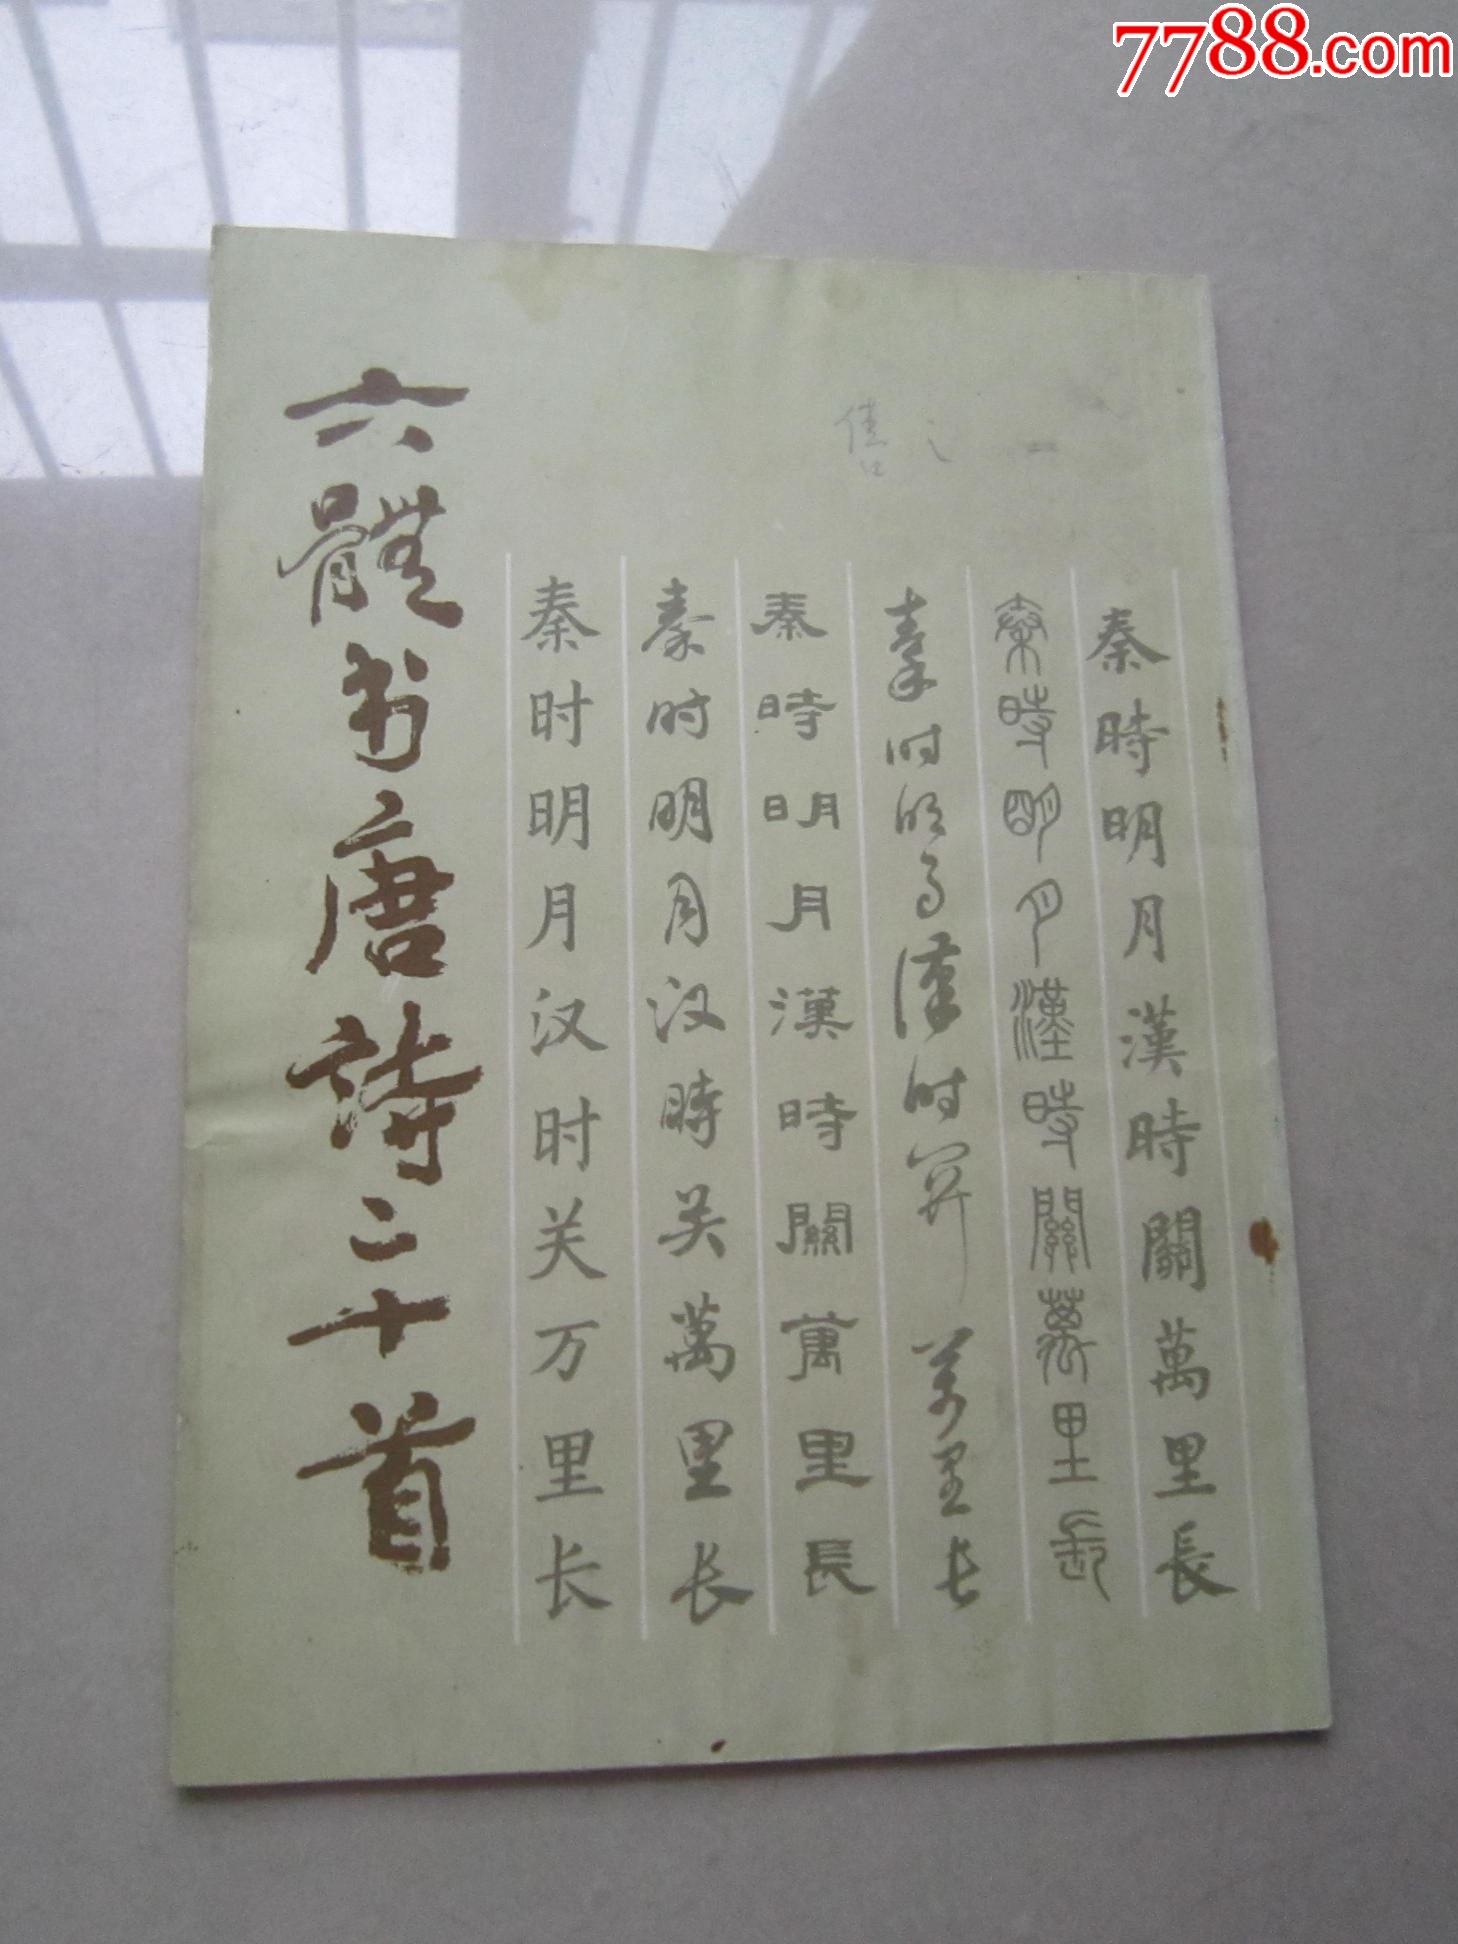 7788.com
六體书唐詩二十首
秦时明月汉时关万里长
秦时明月汉時关萬里长
秦時明月漢時關萬里長
秦时明月漢时关万里长
秦時明月漢時關萬里長
秦時明月漢時關萬里長